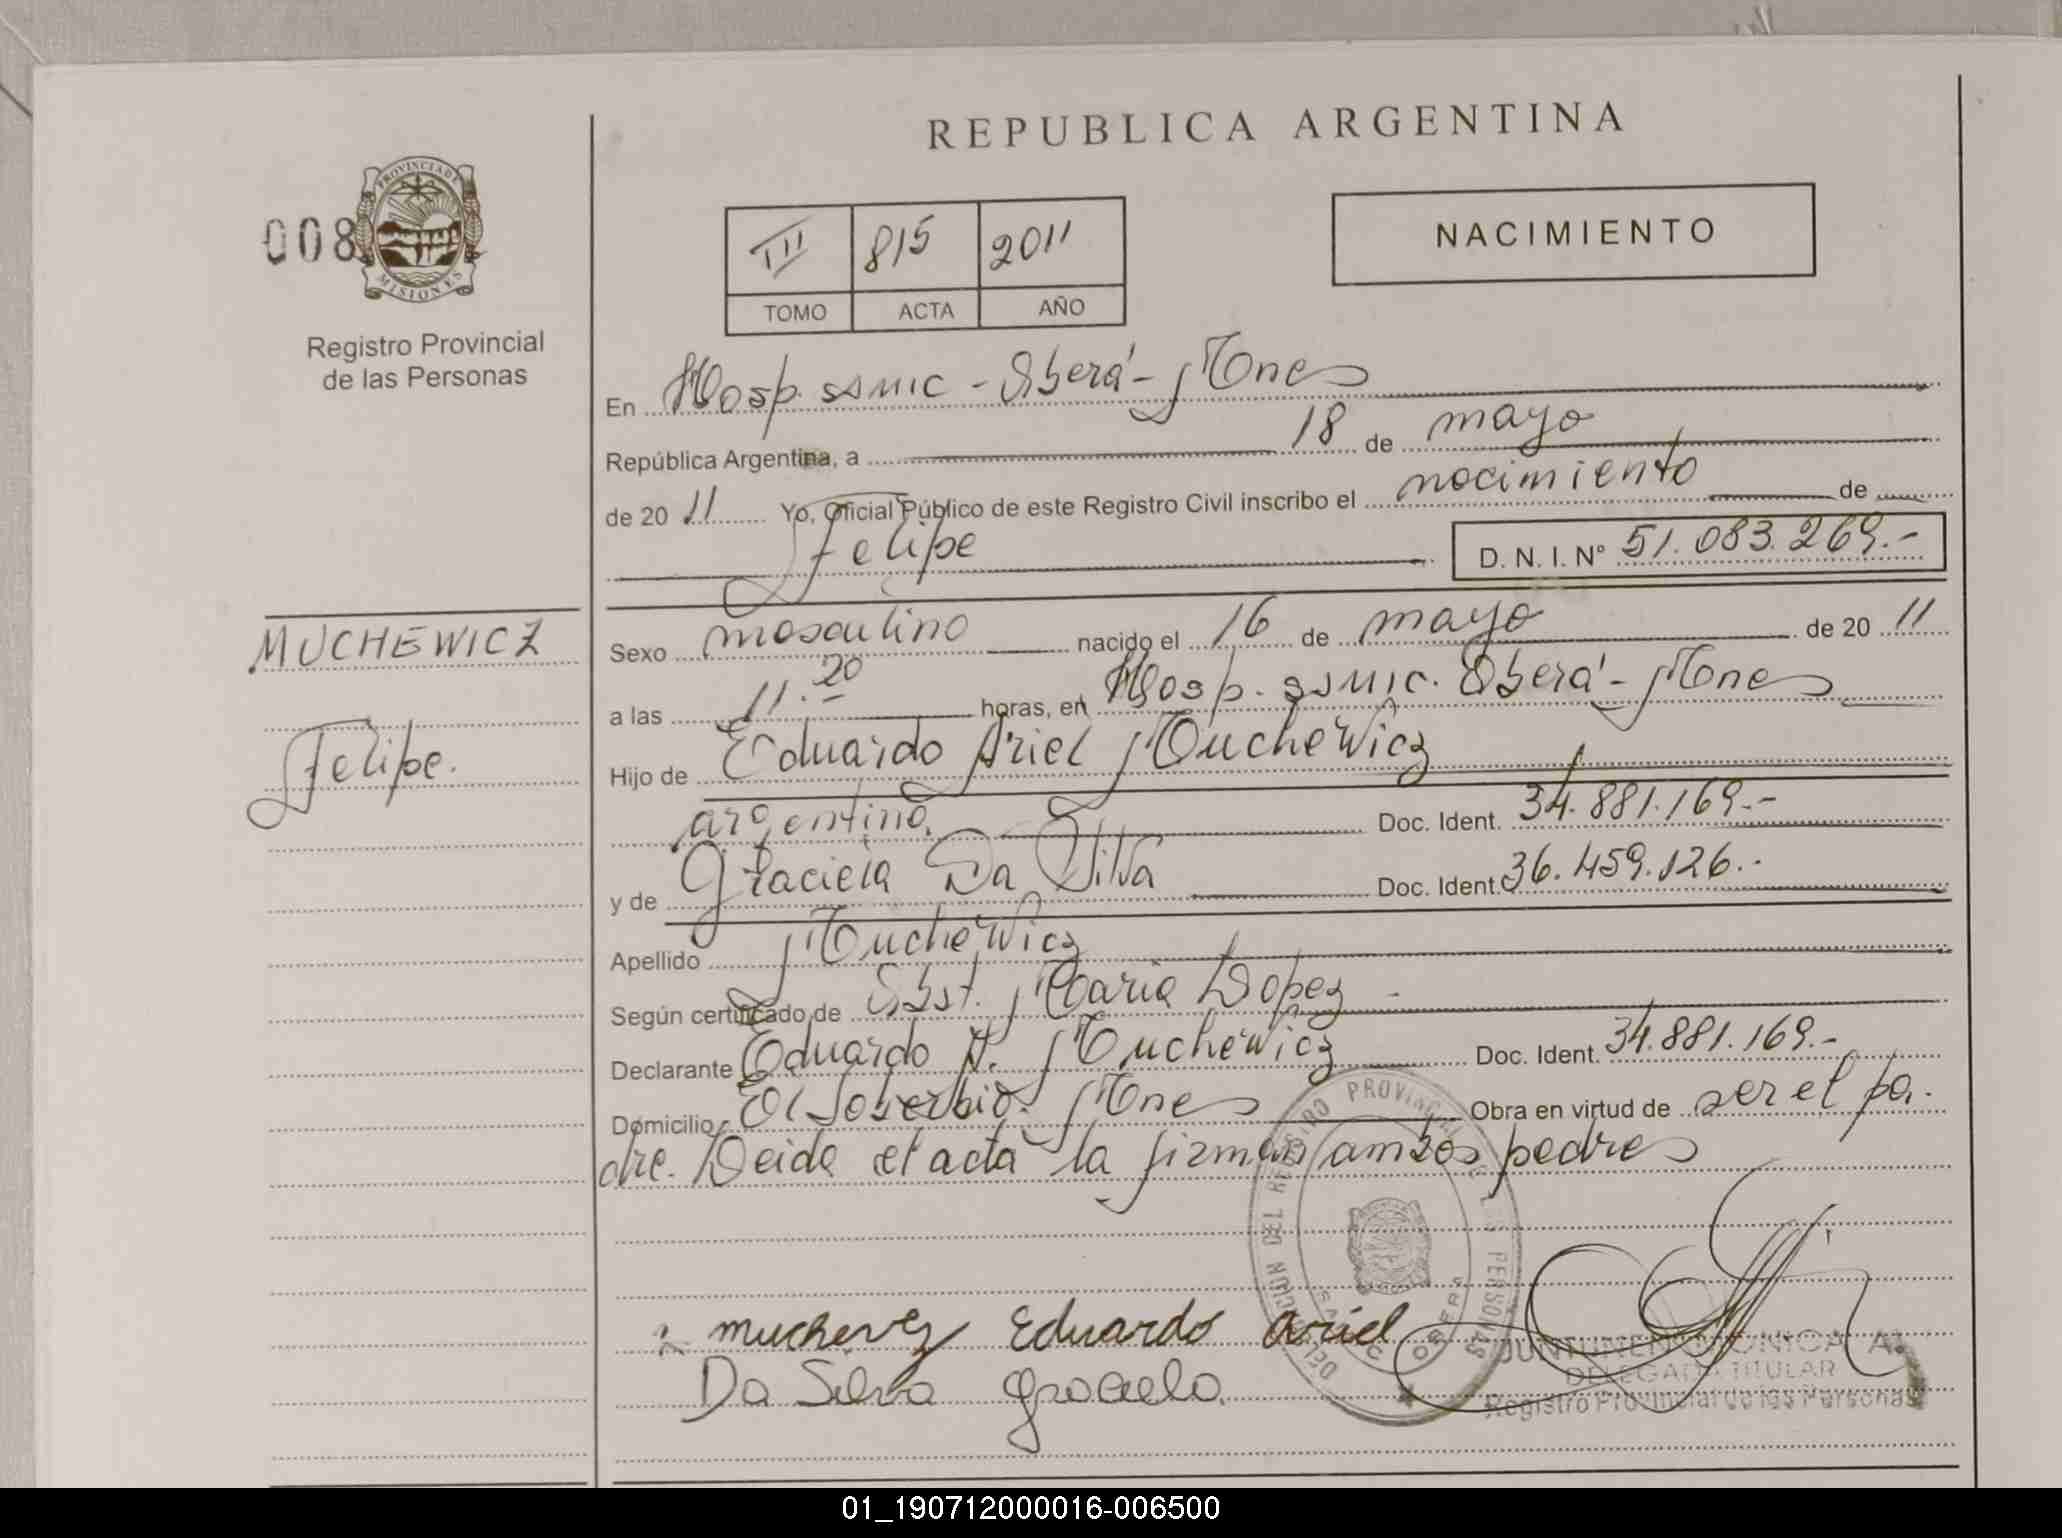 REPUBLICA ARGENTINA
008
PROVINCIA DE MISIONES
Registro Provincial
de las Personas
III 815 2011
TOMO ACTA AÑO
NACIMIENTO
En Hosp. SAMIC - Oberá - Mnes
República Argentina, a 18 de mayo
de 2011 Yo, Oficial Público de este Registro Civil inscribo el nacimiento de
Felipe D. N. I. N° 51.083.269.-
MUCHEWICZ
Felipe.
Sexo masculino nacido el 16 de mayo de 2011
a las 11.20 horas, en Hosp. SAMIC. Oberá - Mnes
Hijo de Eduardo Ariel Muchewicz
argentino. Doc. Ident. 34.881.169.-
y de Graciela Da Silva Doc. Ident. 36.459.126.-
Apellido Muchewicz
Según certificado de Obst. Maria Lopez -
Declarante Eduardo A. Muchewicz Doc. Ident. 34.881.169.-
Domicilio El Soberbio. Mnes Obra en virtud de ser el pa.
dre. Leida el acta la firman ambos padres
Eduardo Ariel
Da Silva Graciela.
DEL REGISTRO PROVINCIAL DE LAS PERSONAS
SAMIC OBERA
MONICA A.
DELEGADA TITULAR
Registro Provincial de las Personas
01_190712000016-006500